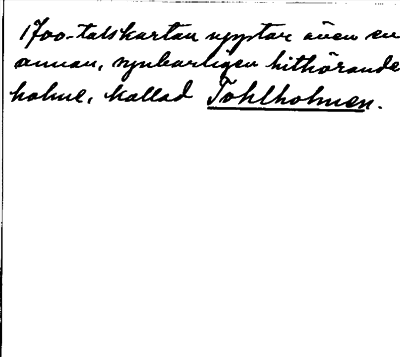 1700-talskartan upptar även en
annan, synbarligen hithörande
holme, kallad Tohlholmen.